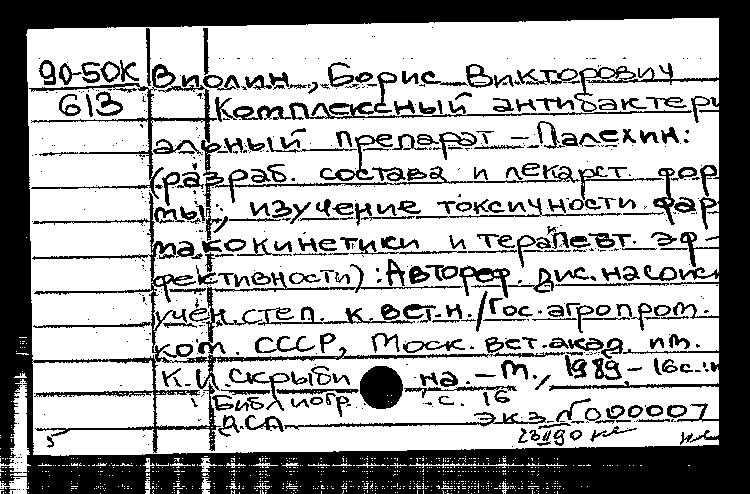 90-50К Виолин, Борис Викторович
613 Комплексный антибактери
альный препарат – Палехин:
(разраб. состава и лекарст. фор
мы, изучение токсичности фар
макокинетики и терапевт. эф-
фективности): Автореф. дис. на соиск
учен. степ. к. вет. н. / Гос. агропром.
ком. СССР, Моск. вет. акад. им.
К.И. Скрябина. – М., 1989. – 16 с.
Библиогр. с. 16
ДСП
Экз. N 000007